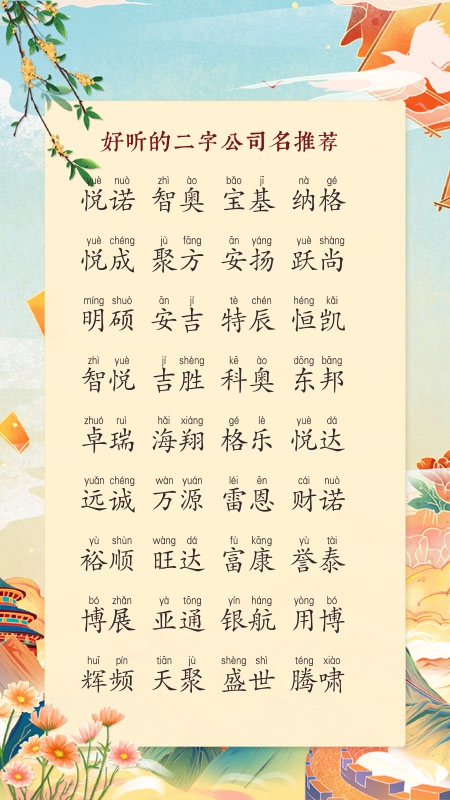 好听的二字公司名推荐
yuè nuò zhì ào bǎo jī nà gé
悦诺 智奥 宝基 纳格
yuè chéng jù fāng ān yáng yuè shàng
悦成 聚方 安扬 跃尚
míng shuò ān jí tè chén héng kǎi
明硕 安吉 特辰 恒凯
zhì yuè jí shèng kē ào dōng bāng
智悦 吉胜 科奥 东邦
zhuó ruì hǎi xiáng gé lè yuè dá
卓瑞 海翔 格乐 悦达
yuǎn chéng wàn yuán léi ēn cái nuò
远诚 万源 雷恩 财诺
yù shùn wàng dá fù kāng yù tài
裕顺 旺达 富康 誉泰
bó zhǎn yà tōng yín háng yòng bó
博展 亚通 银航 用博
huī pín tiān jù shèng shì téng xiào
辉频 天聚 盛世 腾啸